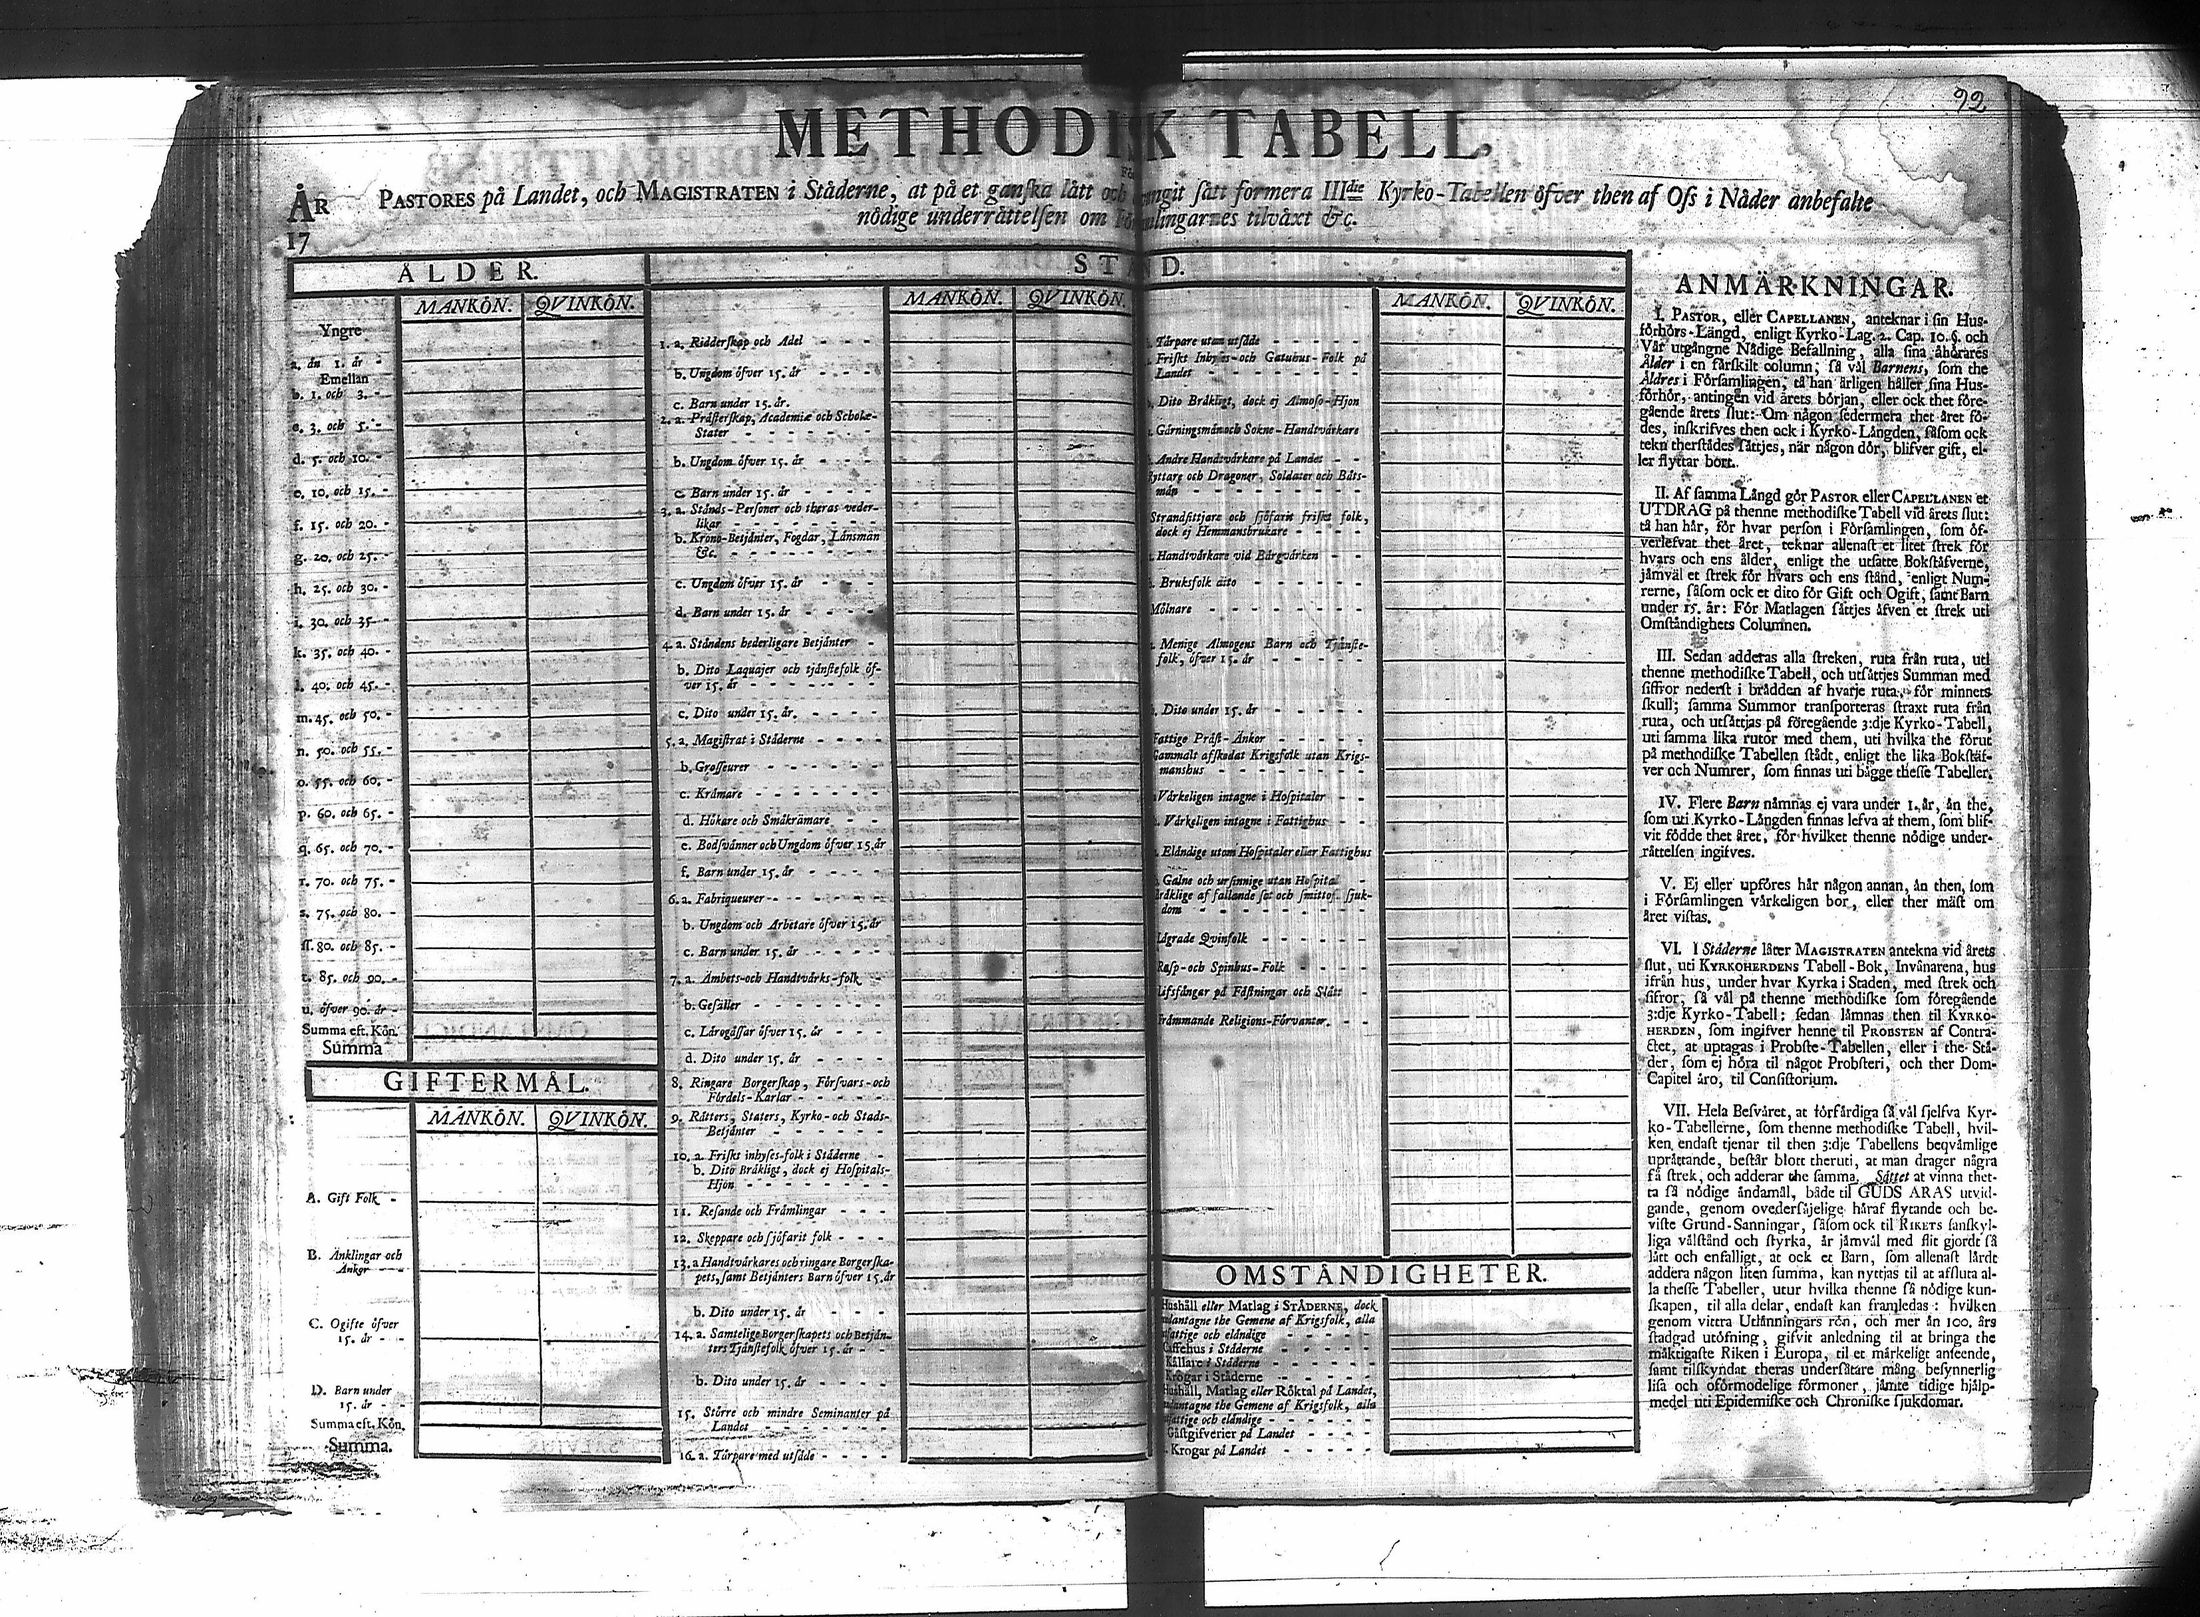 92
METHODISK TABELL,
För
PASTORES på Landet, och MAGISTRATEN i Ståderne, at på et ganska lätt och sätt formera IIIdie Kyrko-Tabellen öfver then af Oss i Nåder anbefalte
nödige underrättelsen om Församlingarnes tilväxt &c.
ÅR
17
ÅLDER.
MANKÖN. QVINKÖN.
Yngre
a. än 1. år -
Emellan
b. 1. och 3. -
c. 3. och 5. -
d. 5. och 10. -
e. 10. och 15. -
f. 15. och 20. -
g. 20. och 25. -
h. 25. och 30. -
i. 30. och 35 -
k. 35. och 40. -
l. 40. och 45. -
m. 45. och 50. -
n. 50. och 55. -
o. 55. och 60. -
p. 60. och 65. -
q. 65. och 70. -
r. 70. och 75. -
s. 75. och 80. -
ſſ. 80. och 85. -
t. 85. och 90. -
u. öfver 90. år -
Summa eft. Kön.
Summa
GIFTERMÅL.
MANKÖN. QVINKÖN.
A. Gift Folk -
B. Änklingar och
Änkor
C. Ogifte öfver
15. år - -
D. Barn under
15. år - -
Summa eſt. Kön.
Summa.
STÅND.
MANKÖN. QVINKÖN.
1. a. Ridderſkap och Adel - - - -
b. Ungdom öfver 15. år - - - -
c. Barn under 15. år.
2. a. Präſterſkap, Academiæ och Scholæ-
Stater - - - - -
b. Ungdom öfver 15. år - - - -
c. Barn under 15. år - - - - -
3. a. Stånds-Perſoner och theras veder-
likar - - - - - -
b. Krono-Betjänter, Fogdar, Länsmän
&c. - - - - - -
c. Ungdom öfver 15. år - - - -
d. Barn under 15. år - - - -
4. a. Ståndens hederligare Betjänter -
b. Dito Laquajer och tjänſtefolk öf-
ver 15. år - - - - -
c. Dito under 15. år. - - - -
5. a. Magiſtrat i Ståderne - - - -
b. Groſſeurer - - - - - -
c. Krämare - - - - - -
d. Hökare och Småkrämare - -
e. Bodſvänner och Ungdom öfver 15. år
f. Barn under 15. år - - - -
6. a. Fabriqueurer - - - - - -
b. Ungdom och Arbetare öfver 15. år
c. Barn under 15. år - - - -
7. a. Ämbets-och Handtvärks-folk
b. Geſäller - - - - - -
c. Lärogåſſar öfver 15. år - - -
d. Dito under 15. år - - - -
8. Ringare Borgerſkap, Förſvars-och
Fördels-Karlar - - - -
9. Rätters, Staters, Kyrko-och Stads-
Betjänter - - - - -
10. a. Friſkt inhyſes-folk i Ståderne -
b. Dito Bräkligt, dock ej Hoſpitals-
Hjon - - - - - -
11. Reſande och Främlingar - - -
12. Skeppare och ſjöfarit folk - - -
13. a Handtvärkares och ringare Borgerſka-
pets, ſamt Betjänters Barn öfver 15. år
b. Dito under 15. år - - - -
14. a. Samtelige Borgerſkapets och Betjän-
ters Tjänſtefolk öfver 15. år -
b. Dito under 15. år - - - -
15. Större och mindre Seminanter på
Landet - - - - - -
16. a. Tårpare med utſäde - - - -
MANKÖN. QVINKÖN.
Tårpare utan utſäde - - - -
Friſkt Inhyſes-och Gatuhus-Folk på
Landet - - - - - -
Dito Bräkligt, dock ej Almoſo-Hjon
Gärningsmän och Sokne-Handtvärkare
Andre Handtvärkare på Landet - -
Ryttare och Dragoner, Soldater och Båts-
män - - - - - -
Strandſittjare och ſjöfarit friſkt folk,
dock ej Hemmansbrukare - - -
Handtvärkare vid Bärgvärken - -
Bruksfolk dito - - - - -
Mölnare - - - - - -
Menige Almogens Barn och Tjänſte-
folk, öfver 15. år - - - -
Dito under 15. år - - - -
Fattige Präſt-Änkor - - - -
Gammalt afſkedat Krigsfolk utan Krigs-
manshus - - - - - -
Värkeligen intagne i Hoſpitaler - -
Värkeligen intagne i Fattighus - -
Eländige utom Hoſpitaler eller Fattighus
Galne och urſinnige utan Hoſpital -
Bräklige af fallande ſot och ſmittoſ. ſjuk-
dom - - - - - -
Lägrade Qvinfolk - - - - -
Raſp-och Spinhus-Folk - - - -
Lifsfångar på Fäſtningar och Slått -
Främmande Religions-Förvanter. - -
OMSTÄNDIGHETER.
Hushåll eller Matlag i STÄDERNE, dock
undantagne the Gemene af Krigsfolk, alla
fattige och eländige - - - -
Caffehus i Ståderne - - - -
Källare i Ståderne - - - - -
Krögar i Ståderne - - - - -
Hushåll, Matlag eller Röktal på Landet,
undantagne the Gemene af Krigsfolk, alla
fattige och eländige - - - -
Gäſtgifverier på Landet - - - -
Krogar på Landet - - - - -
ANMÄRKNINGAR.
I. PASTOR, eller CAPELLANEN, anteknar i ſin Hus-
förhörs-Längd, enligt Kyrko-Lag. 2. Cap. 10. §. och
Vår utgångne Nådige Befallning, alla ſina åhörares
Ålder i en ſärſkilt column; ſå väl Barnens, ſom the
Äldres i Förſamlingen, tå han årligen håller ſina Hus-
förhör, antingen vid årets början, eller ock thet före-
gående årets ſlut: Om någon ſedermera thet året fö-
des, inſkrifves then ock i Kyrko-Längden, ſåſom ock
tekn therſtädes ſättjes, när någon dör, blifver gift, el-
ler flyttar bort.
II. Af ſamma Längd gör PASTOR eller CAPELLANEN et
UTDRAG på thenne methodiſke Tabell vid årets ſlut:
tå han här, för hvar perſon i Förſamlingen, ſom öf-
verlefvat thet året, teknar allenaſt et litet ſtrek för
hvars och ens ålder, enligt the utſatte Bokſtäfverne,
jämväl et ſtrek för hvars och ens ſtånd, enligt Num-
rerne, ſåſom ock et dito för Gift och Ogift, ſamt Barn
under 15. år: För Matlagen ſättjes äfven et ſtrek uti
Omſtändighets Columnen.
III. Sedan adderas alla ſtreken, ruta från ruta, uti
thenne methodiſke Tabell, och utſättjes Summan med
ſiffror nederſt i brädden af hvarje ruta, för minnets
ſkull; ſamma Summor transporteras ſtraxt ruta från
ruta, och utſättjas på föregående 3:dje Kyrko-Tabell,
uti ſamma lika rutor med them, uti hvilka the förut
på methodiſke Tabellen ſtådt, enligt the lika Bokſtäf-
ver och Numrer, ſom finnas uti bägge theſſe Tabeller.
IV. Flere Barn nämnas ej vara under 1. år, än the,
ſom uti Kyrko-Längden finnas lefva af them, ſom blif-
vit födde thet året, för hvilket thenne nödige under-
rättelſen ingifves.
V. Ej eller upföres här någon annan, än then, ſom
i Förſamlingen värkeligen bor, eller ther mäſt om
året viſtas.
VI. I Ståderne låter MAGISTRATEN antekna vid årets
ſlut, uti KYRKOHERDENS Tabell-Bok, Invånarena, hus
ifrån hus, under hvar Kyrka i Staden, med ſtrek och
ſifror, ſå väl på thenne methodiſke ſom föregående
3:dje Kyrko-Tabell: ſedan lämnas then til KYRKO-
HERDEN, ſom ingifver henne til PROBSTEN af Contra-
ctet, at uptagas i Probſte-Tabellen, eller i the Stä-
der, ſom ej höra til något Probſteri, och ther Dom-
Capitel äro, til Conſiſtorium.
VII. Hela Beſväret, at förfärdiga ſå väl ſjelfva Kyr-
ko-Tabellerne, ſom thenne methodiſke Tabell, hvil-
ken endaſt tjenar til then 3:dje Tabellens beqvämlige
uprättande, beſtår blott theruti, at man drager några
få ſtrek, och adderar the ſamma. Sättet at vinna thet-
ta ſå nödige ändamål, både til GUDS ÄRAS utvid-
gande, genom ovederſäjelige häraf flytande och be-
viſte Grund-Sanningar, ſåſom ock til RIKETS ſanſkyl-
liga välſtånd och ſtyrka, är jämväl med flit gjordt ſå
lätt och enfalligt, at ock et Barn, ſom allenaſt lärdt
addera någon liten ſumma, kan nyttjas til at afſluta al-
la theſſe Tabeller, utur hvilka thenne ſå nödige kun-
ſkapen, til alla delar, endaſt kan framledas: hvilken
genom vittra Utlänningars rön, och mer än 100. års
ſtadgad utöfning, gifvit anledning til at bringa the
mäktigaſte Riken i Europa, til et märkeligt anſeende,
ſamt tilſkyndat theras underſåtare mång beſynnerlig
liſa och oförmodelige förmoner, jämte tidige hjälp-
medel uti Epidemiſke och Chroniſke ſjukdomar.